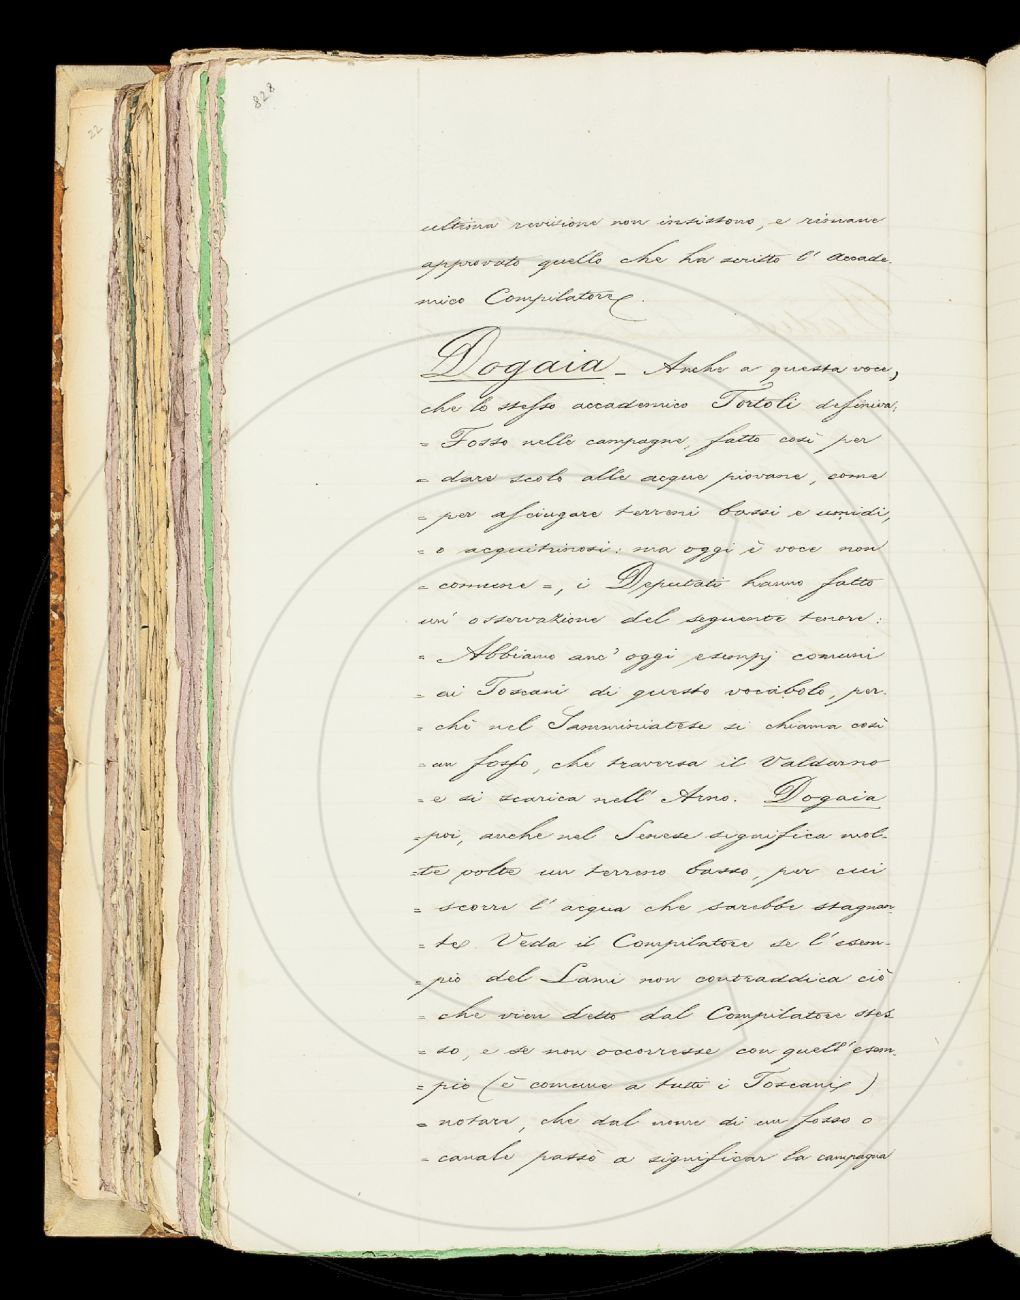 828
22
ultima revisione non insistono, e rimane
approvato quello che ha scritto l' Accade-
mico Compilatore.
Dogaia - Anche a questa voce,
che lo stesso accademico Tortoli definiva;
= Fosso nelle campagne, fatto così per
= dare scolo alle acque piovane, come
= per asciugare terreni bassi e umidi,
= o acquitrinosi: ma oggi è voce non
= comune =, i Deputati hanno fatto
un' osservazione del seguente tenore:
= Abbiamo anc' oggi esempj comuni
= ai Toscani di questo vocabolo, per-
= chè nel Samminiatese si chiama così
= un fosso, che traversa il Valdarno
= e si scarica nell' Arno. Dogaia
= poi, anche nel Senese significa mol-
= te volte un terreno basso, per cui
= scorre l' acqua che sarebbe stagnan-
= te. Veda il Compilatore se l' esem-
= pio del Lami non contraddica ciò
= che vien detto dal Compilatore stes-
= so, e se non occorresse con quell' esem-
= pio (è comune a tutti i Toscani)
= notare, che dal nome di un fosso o
= canale passò a significar la campagna